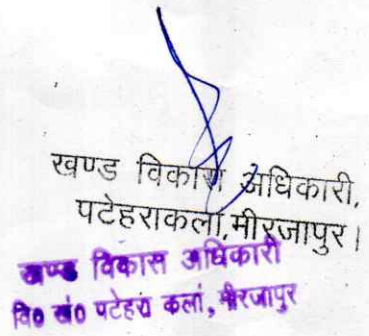 खण्ड विकास अधिकारी,
पटेहराकलां,मीरजापुर।
खण्ड विकास अधिकारी
वि० खं० पटेहरा कलां, मीरजापुर